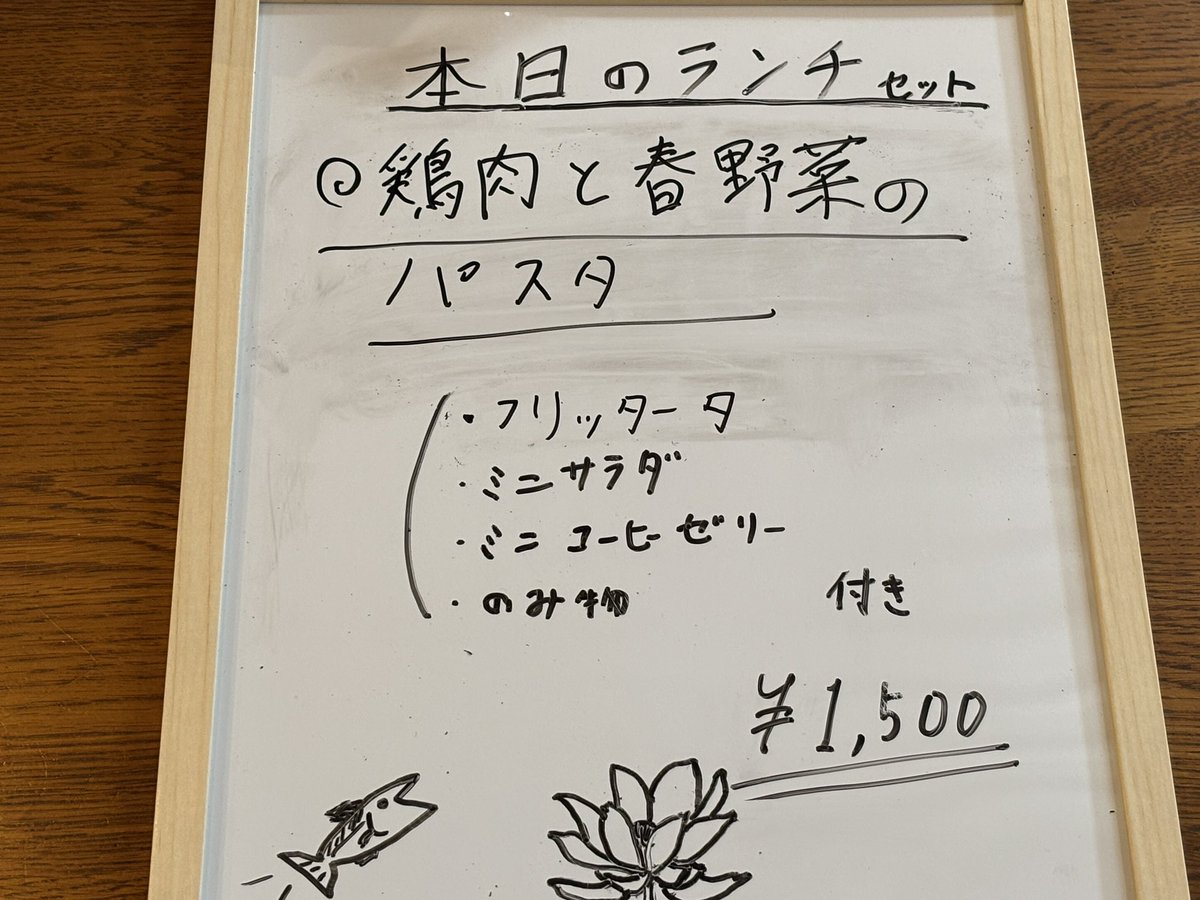 本日のランチセット
◎鶏肉と春野菜の
パスタ
・フリッタータ
・ミニサラダ
・ミニコーヒーゼリー
・のみ物 付き
¥1,500